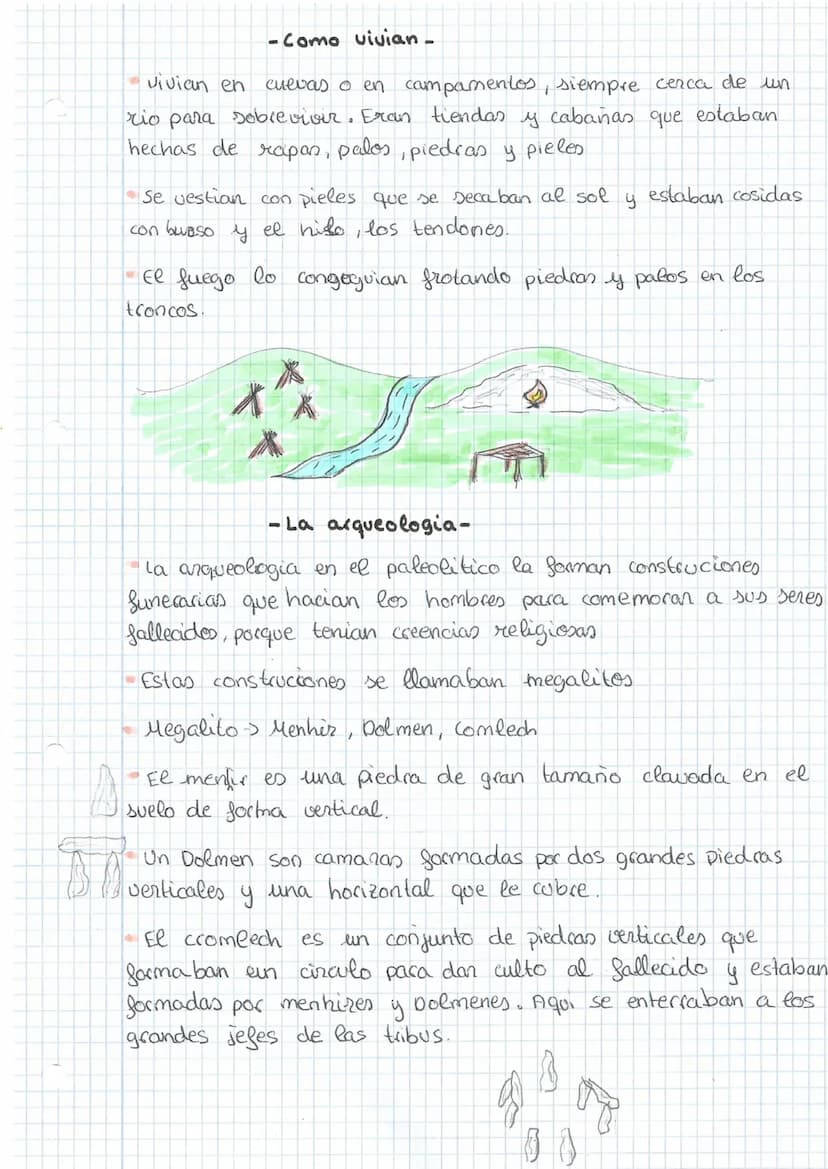 - Como vivian -
• vivian en cuevas o en campamentos, siempre cerca de un
rio para sobrevivir. Eran tiendas y cabañas que estaban
hechas de rapas, palos, piedras y pieles
• Se vestian con pieles que se secaban al sol y estaban cosidas
con hueso y el hilo, los tendones.
• El fuego lo congeguian frotando piedras y palos en los
troncos.
- La arqueologia -
• La arqueologia en el paleolitico la forman construciones
funerarias que hacian los hombres para comemorar a sus seres
fallecidos, porque tenian creencias religiosas
• Estas construciones se llamaban megalitos
• Megalito -> Menhir, Dolmen, Comlech
• El menhir es una piedra de gran tamaño clavada en el
suelo de forma vertical.
• Un Dolmen son camaras formadas por dos grandes piedras
verticales y una horizontal que le cubre.
• El cromlech es un conjunto de piedras verticales que
formaban un circulo para dar culto al fallecido y estaban
formadas por menhires y Dolmenes. Aqui se enterraban a los
grandes jefes de las tribus.